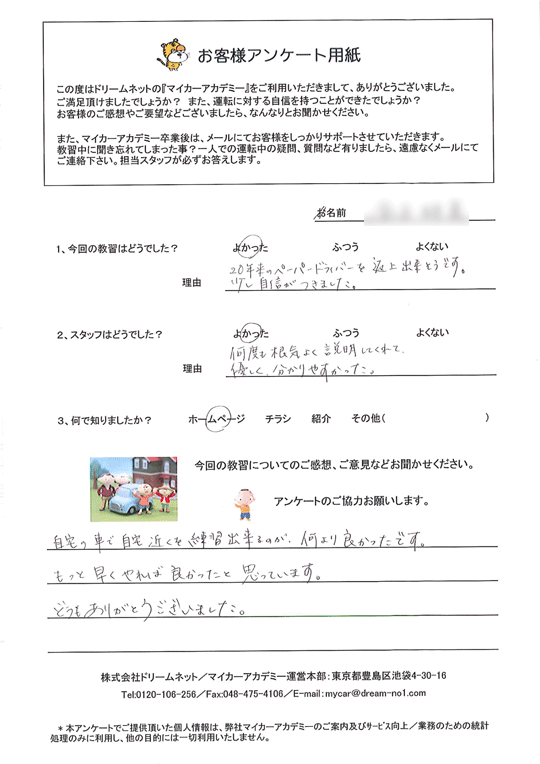 お客様アンケート用紙
この度はドリームネットの『マイカーアカデミー』をご利用いただきまして、ありがとうございました。
ご満足頂けましたでしょうか？ また、運転に対する自信を持つことができたでしょうか？
お客様のご感想やご要望などございましたら、なんなりとお聞かせください。
また、マイカーアカデミー卒業後は、メールにてお客様をしっかりサポートさせていただきます。
教習中に聞き忘れてしまった事？一人での運転中の疑問、質問など有りましたら、遠慮なくメールにて
ご連絡下さい。担当スタッフが必ずお答えします。
お名前
1、今回の教習はどうでした？ よかった ふつう よくない
理由 20年来のペーパードライバーを返上出来そうです。
少し自信がつきました。
2、スタッフはどうでした？ よかった ふつう よくない
何度も根気よく説明してくれて、
理由 優しく、分かりやすかった。
3、何で知りましたか？ ホームページ チラシ 紹介 その他( )
今回の教習についてのご感想、ご意見などお聞かせください。
アンケートのご協力お願いします。
自宅の車で自宅近くを練習出来るのが、何より良かったです。
もっと早くやれば良かったと思っています。
どうもありがとうございました。
株式会社ドリームネット／マイカーアカデミー運営本部：東京都豊島区池袋4-30-16
Tel:0120-106-256／Fax:048-475-4106／E-mail:mycar@dream-no1.com
＊本アンケートでご提供頂いた個人情報は、弊社マイカーアカデミーのご案内及びサービス向上／業務のための統計
処理のみに利用し、他の目的には一切利用いたしません。